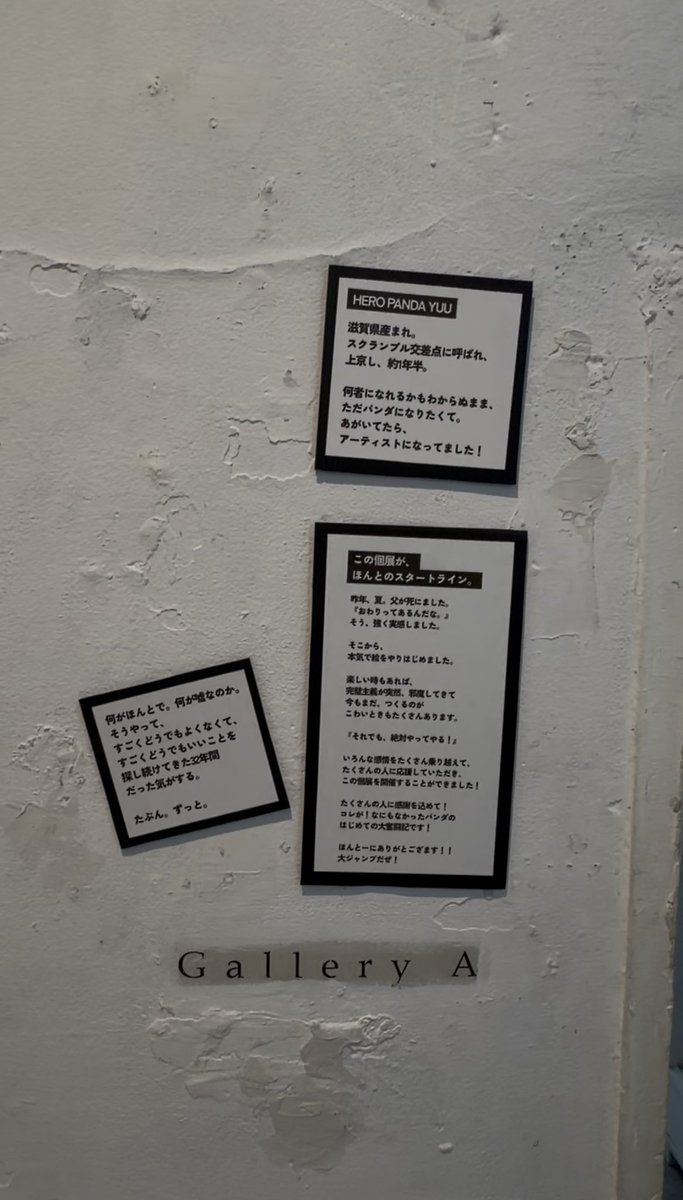 HERO PANDA YUU
滋賀県産まれ。
スクランブル交差点に呼ばれ、
上京し、約1年半。
何者になれるかもわからぬまま、
ただパンダになりたくて。
あがいてたら、
アーティストになってました！
この個展が、
ほんとのスタートライン。
昨年、夏。父が死にました。
『おわりってあるんだな。』
そう、強く実感しました。
そこから、
本気で絵をやりはじめました。
楽しい時もあれば、
完璧主義が突然、邪魔してきて
今もまだ、つくるのが
こわいときもたくさんあります。
『それでも、絶対やってやる！』
いろんな感情をたくさん乗り越えて、
たくさんの人に応援していただき、
この個展を開催することができました！
たくさんの人に感謝を込めて！
コレが！なにもなかったパンダの
はじめての大奮闘記です！
ほんとーにありがとござます！！
大ジャンプだぜ！
何がほんとで。何が嘘なのか。
そうやって、
すごくどうでもよくなくて、
すごくどうでもいいことを
探し続けてきた32年間
だった気がする。
たぶん。ずっと。
Gallery A